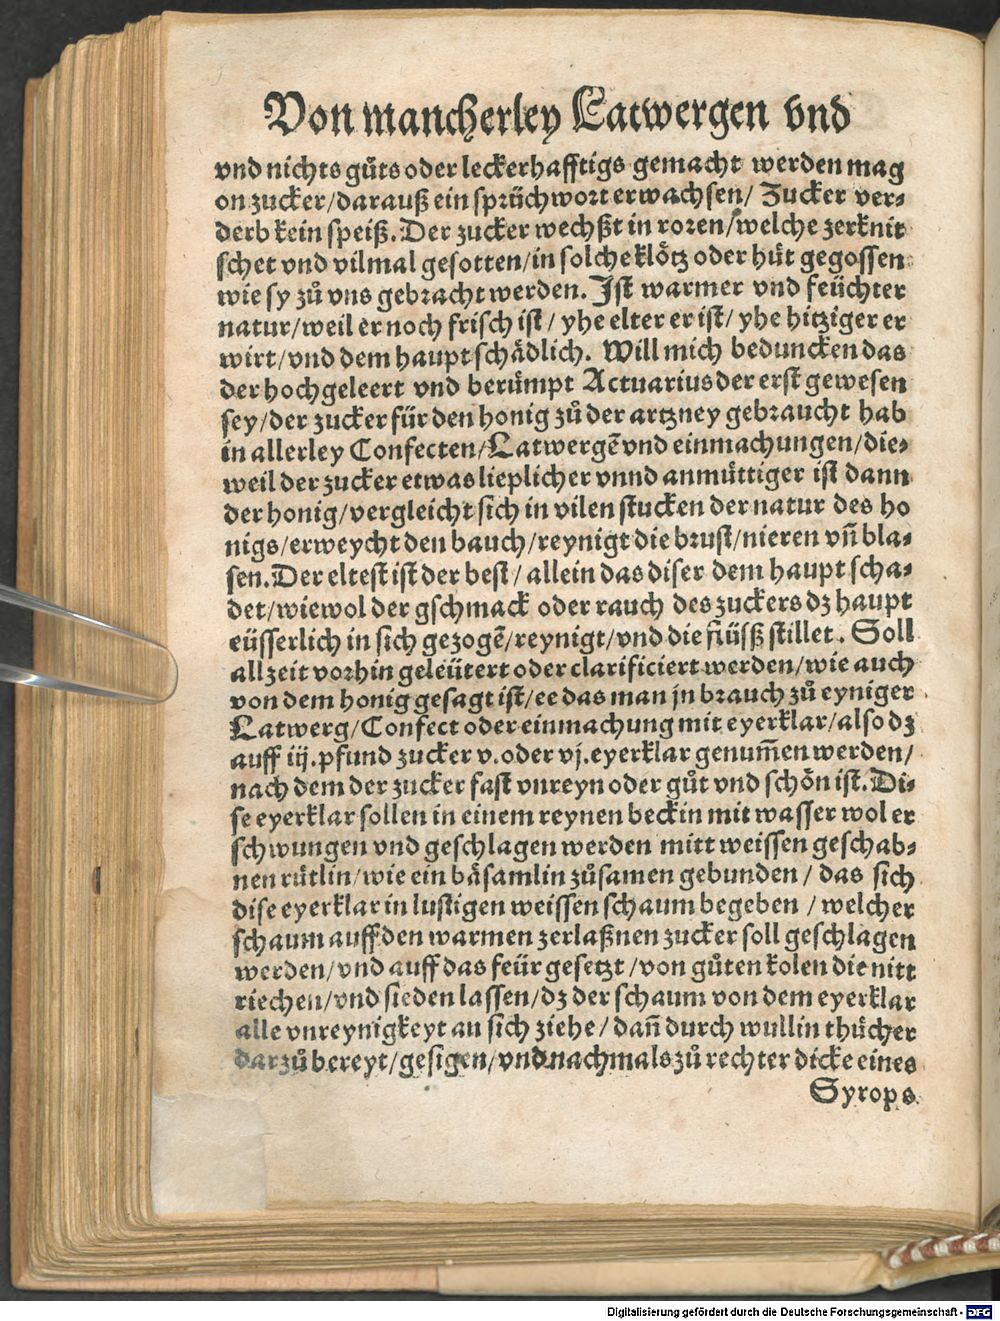 Von mancherley Latwergen vnd
vnd nichts gůts oder leckerhafftigs gemacht werden mag
on zucker/darauß ein sprüchwort erwachsen/ Zucker ver-
derb kein speiß. Der zucker wechßt in roren/welche zerknit
schet vnd vilmal gesotten/in solche klötz oder hüt gegossen
wie sy zů vns gebracht werden. Ist warmer vnd feüchter
natur/weil er noch frisch ist/ yhe elter er ist/ yhe hitziger er
wirt/vnd dem haupt schädlich. Will mich beduncken das
der hochgeleert vnd berümpt Actuarius der erst gewesen
sey/der zucker für den honig zů der artzney gebraucht hab
in allerley Confecten/Latwergē vnd einmachungen/die-
weil der zucker etwas lieplicher vnnd anmüttiger ist dann
der honig/vergleicht sich in vilen stucken der natur des ho
nigs/erweycht den bauch/reynigt die brust/nieren vñ bla-
sen. Der eltest ist der best/ allein das diser dem haupt scha-
det/wiewol der gschmack oder rauch des zuckers dz haupt
eüsserlich in sich gezogē/reynigt/vnd die flüsß stillet. Soll
allzeit vorhin geleütert oder clarificiert werden/wie auch
von dem honig gesagt ist/ee das man jn brauch zů eyniger
Latwerg/Confect oder einmachung mit eyerklar/also dz
auff iij. pfund zucker v. oder vj. eyerklar genum̄en werden/
nach dem der zucker fast vnreyn oder gůt vnd schön ist. Di-
se eyerklar sollen in einem reynen beckin mit wasser wol er
schwungen vnd geschlagen werden mitt weissen geschab-
nen rütlin/wie ein bäsamlin zůsamen gebunden/ das sich
dise eyerklar in lustigen weissen schaum begeben /welcher
schaum auff den warmen zerlaßnen zucker soll geschlagen
werden/vnd auff das feür gesetzt/von gůten kolen die nitt
riechen/vnd sieden lassen/dz der schaum von dem eyerklar
alle vnreynigkeyt an sich ziehe/ dañ durch wullin thücher
darzů bereyt/gesigen/vnd nachmals zů rechter dicke eines
Syrops
Digitalisierung gefördert durch die Deutsche Forschungsgemeinschaft - DFG